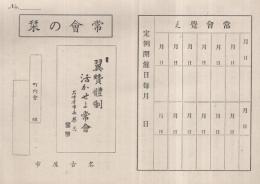 No.
常會の栞
翼贊體制
活かせよ常會
町內會
組
名古屋市
常會覺え
月 日
月 日
月 日
月 日
月 日
月 日
月 日
月 日
月 日
月 日
月 日
月 日
定例開催日每月 日